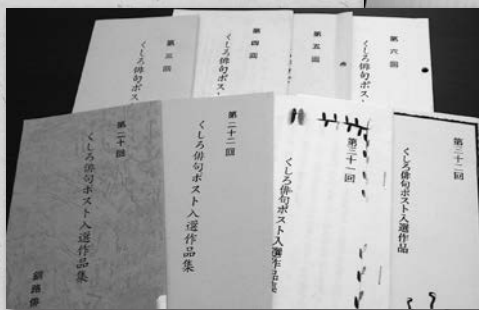 第三回
くしろ俳句ポス
第四回
くしろ俳句ポスト
第五回
くしろ俳句ポス
第六回
くしろ俳句ポスト
第二十回
くしろ俳句ポスト入選作品集
釧路俳
第二十二回
くしろ俳句ポスト入選作品集
第三十一回
くしろ俳句ポスト入選作品集
第三十二回
くしろ俳句ポスト入選作品